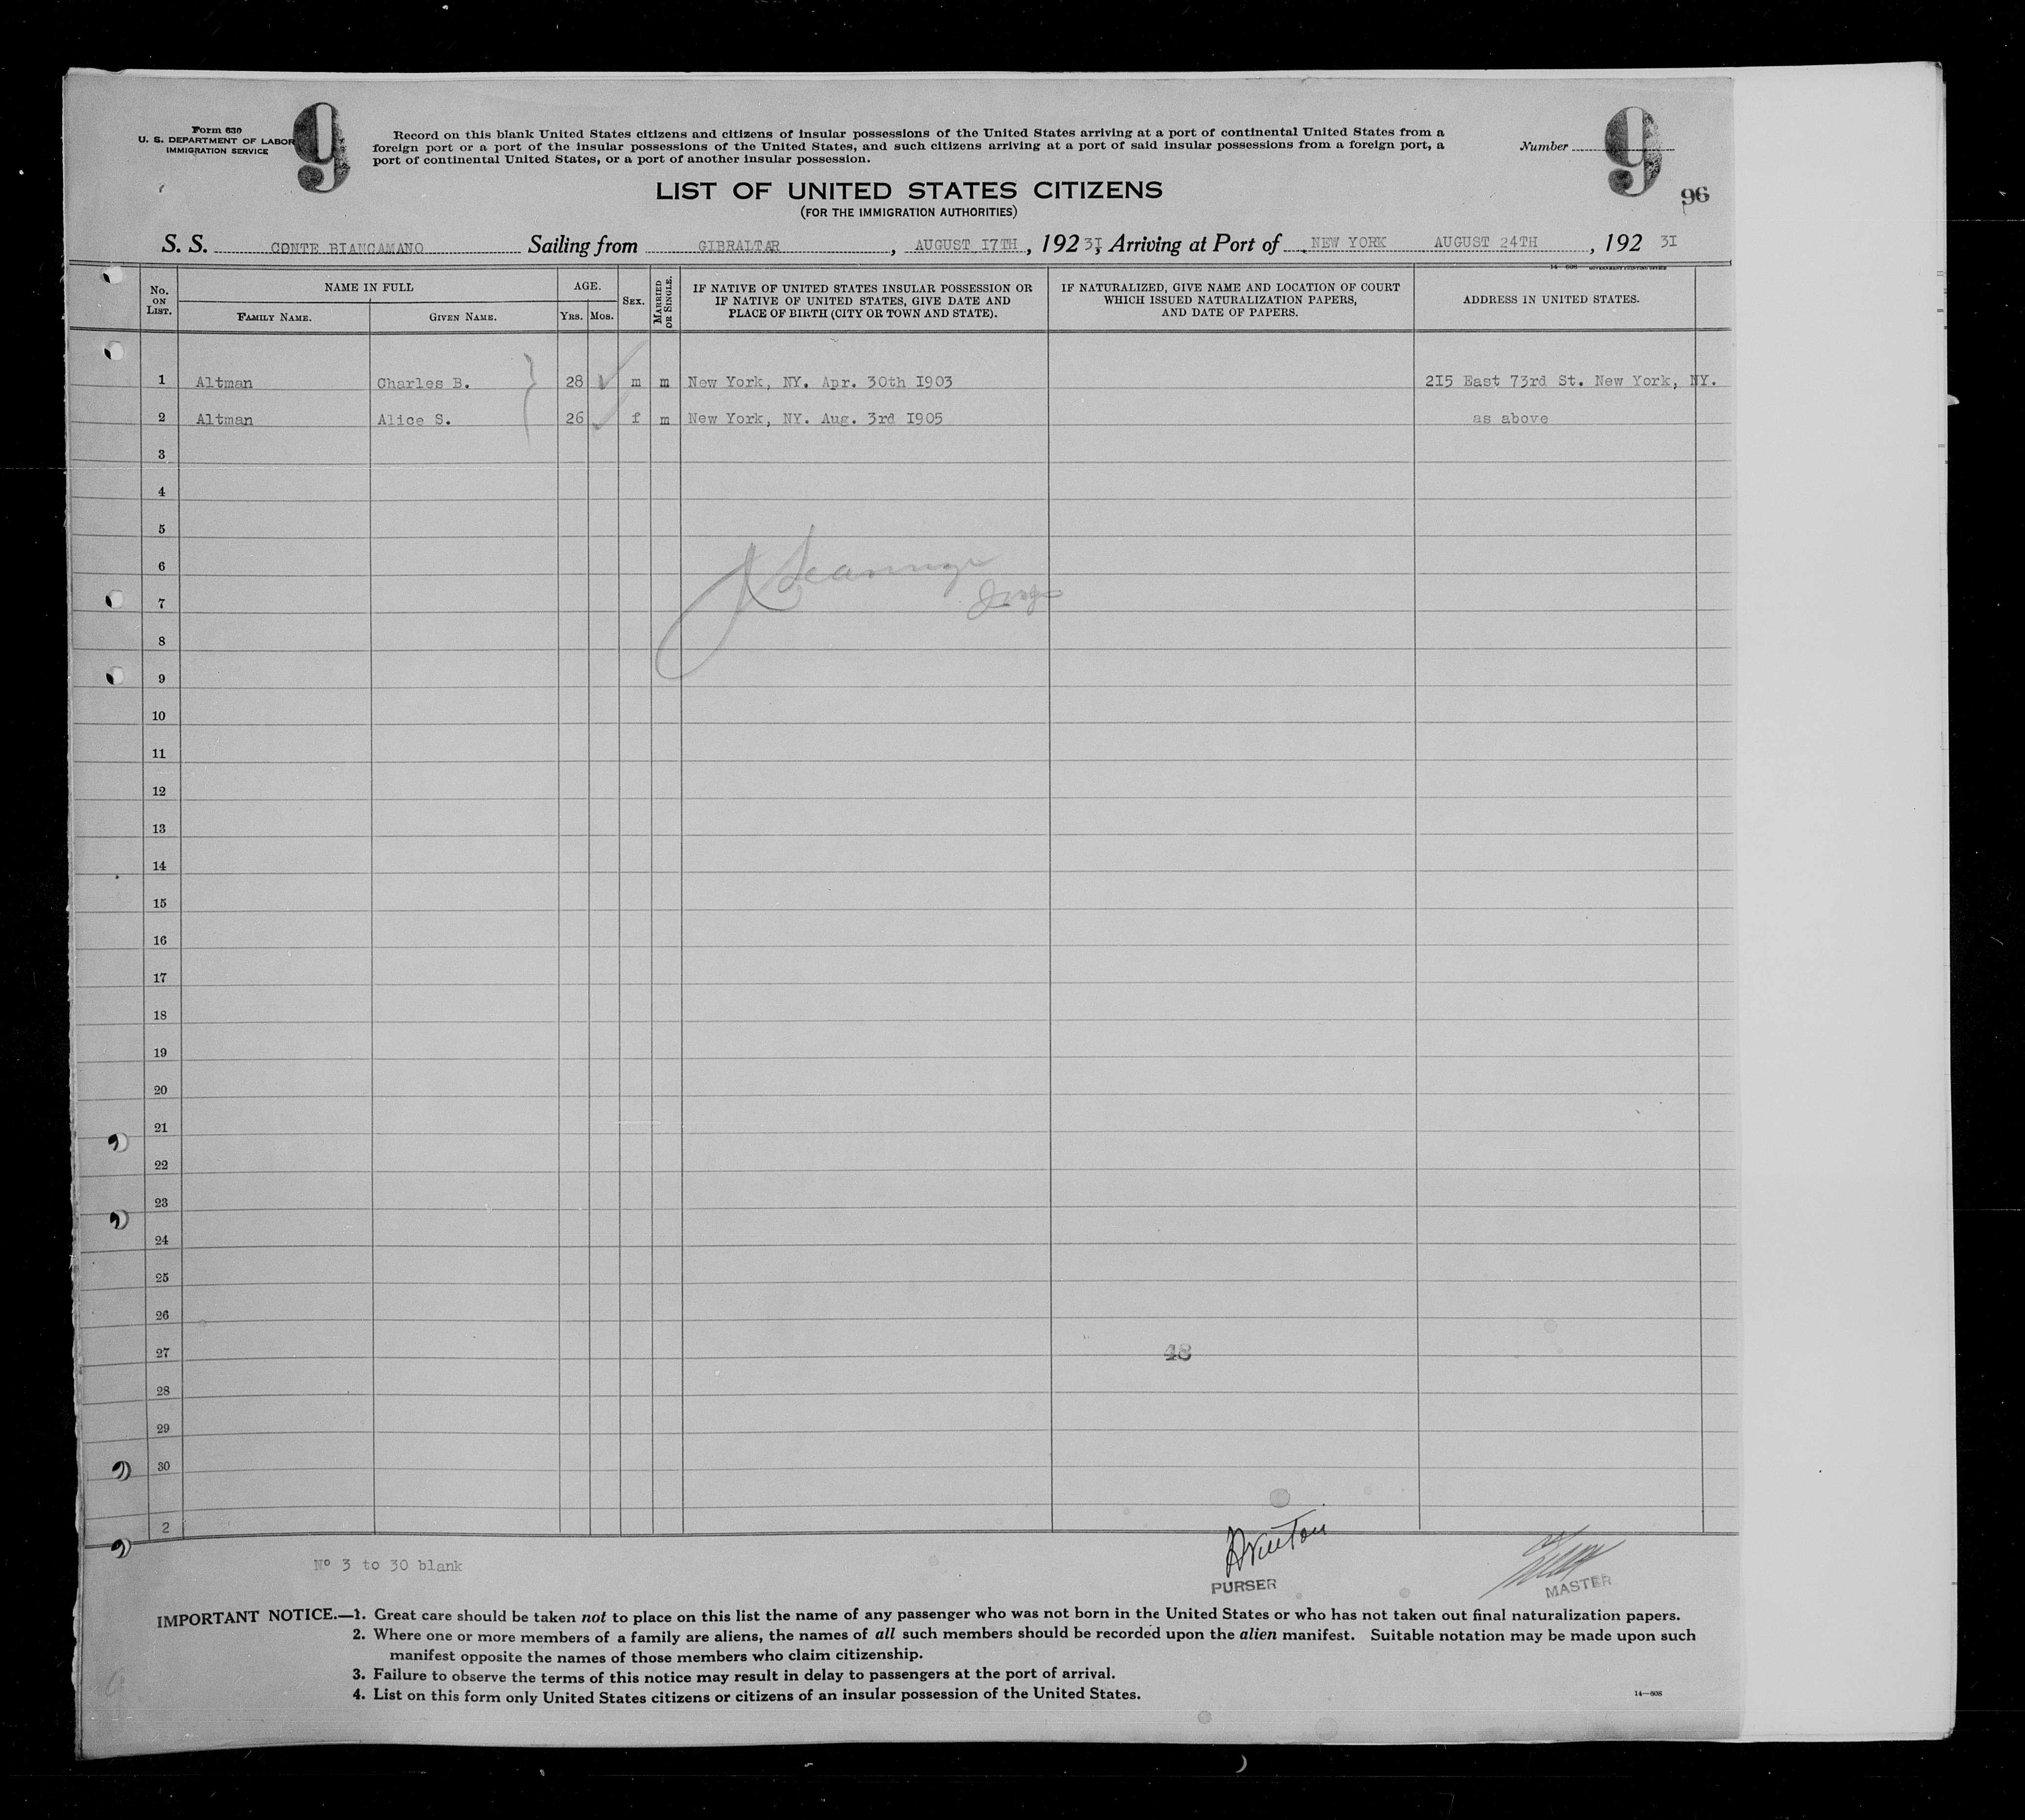 Form 630
U. S. DEPARTMENT OF LABOR
IMMIGRATION SERVICE
9
Record on this blank United States citizens and citizens of insular possessions of the United States arriving at a port of continental United States from a
foreign port or a port of the insular possessions of the United States, and such citizens arriving at a port of said insular possessions from a foreign port, a
port of continental United States, or a port of another insular possession.
Number 9
96
LIST OF UNITED STATES CITIZENS
(FOR THE IMMIGRATION AUTHORITIES)
S. S. CONTE BIANCAMANO Sailing from GIBRALTAR, AUGUST I7TH, 192 3I, Arriving at Port of NEW YORK AUGUST 24TH, 192 3I
14—608 GOVERNMENT PRINTING OFFICE
No. ON LIST. NAME IN FULL AGE. SEX. MARRIED OR SINGLE. IF NATIVE OF UNITED STATES INSULAR POSSESSION OR IF NATIVE OF UNITED STATES, GIVE DATE AND PLACE OF BIRTH (CITY OR TOWN AND STATE). IF NATURALIZED, GIVE NAME AND LOCATION OF COURT WHICH ISSUED NATURALIZATION PAPERS, AND DATE OF PAPERS. ADDRESS IN UNITED STATES.
FAMILY NAME. GIVEN NAME. YRS. MOS.
1 Altman Charles B. 28 m m New York, NY. Apr. 30th I903 2I5 East 73rd St. New York, NY.
2 Altman Alice S. 26 f m New York, NY. Aug. 3rd I905 as above
3
4
5
6
7
8
9
10
11
12
13
14
15
16
17
18
19
20
21
22
23
24
25
26
27 48
28
29
30
2
Nº 3 to 30 blank
PURSER
MASTER
IMPORTANT NOTICE.—1. Great care should be taken not to place on this list the name of any passenger who was not born in the United States or who has not taken out final naturalization papers.
2. Where one or more members of a family are aliens, the names of all such members should be recorded upon the alien manifest. Suitable notation may be made upon such
manifest opposite the names of those members who claim citizenship.
3. Failure to observe the terms of this notice may result in delay to passengers at the port of arrival.
4. List on this form only United States citizens or citizens of an insular possession of the United States.
14—608